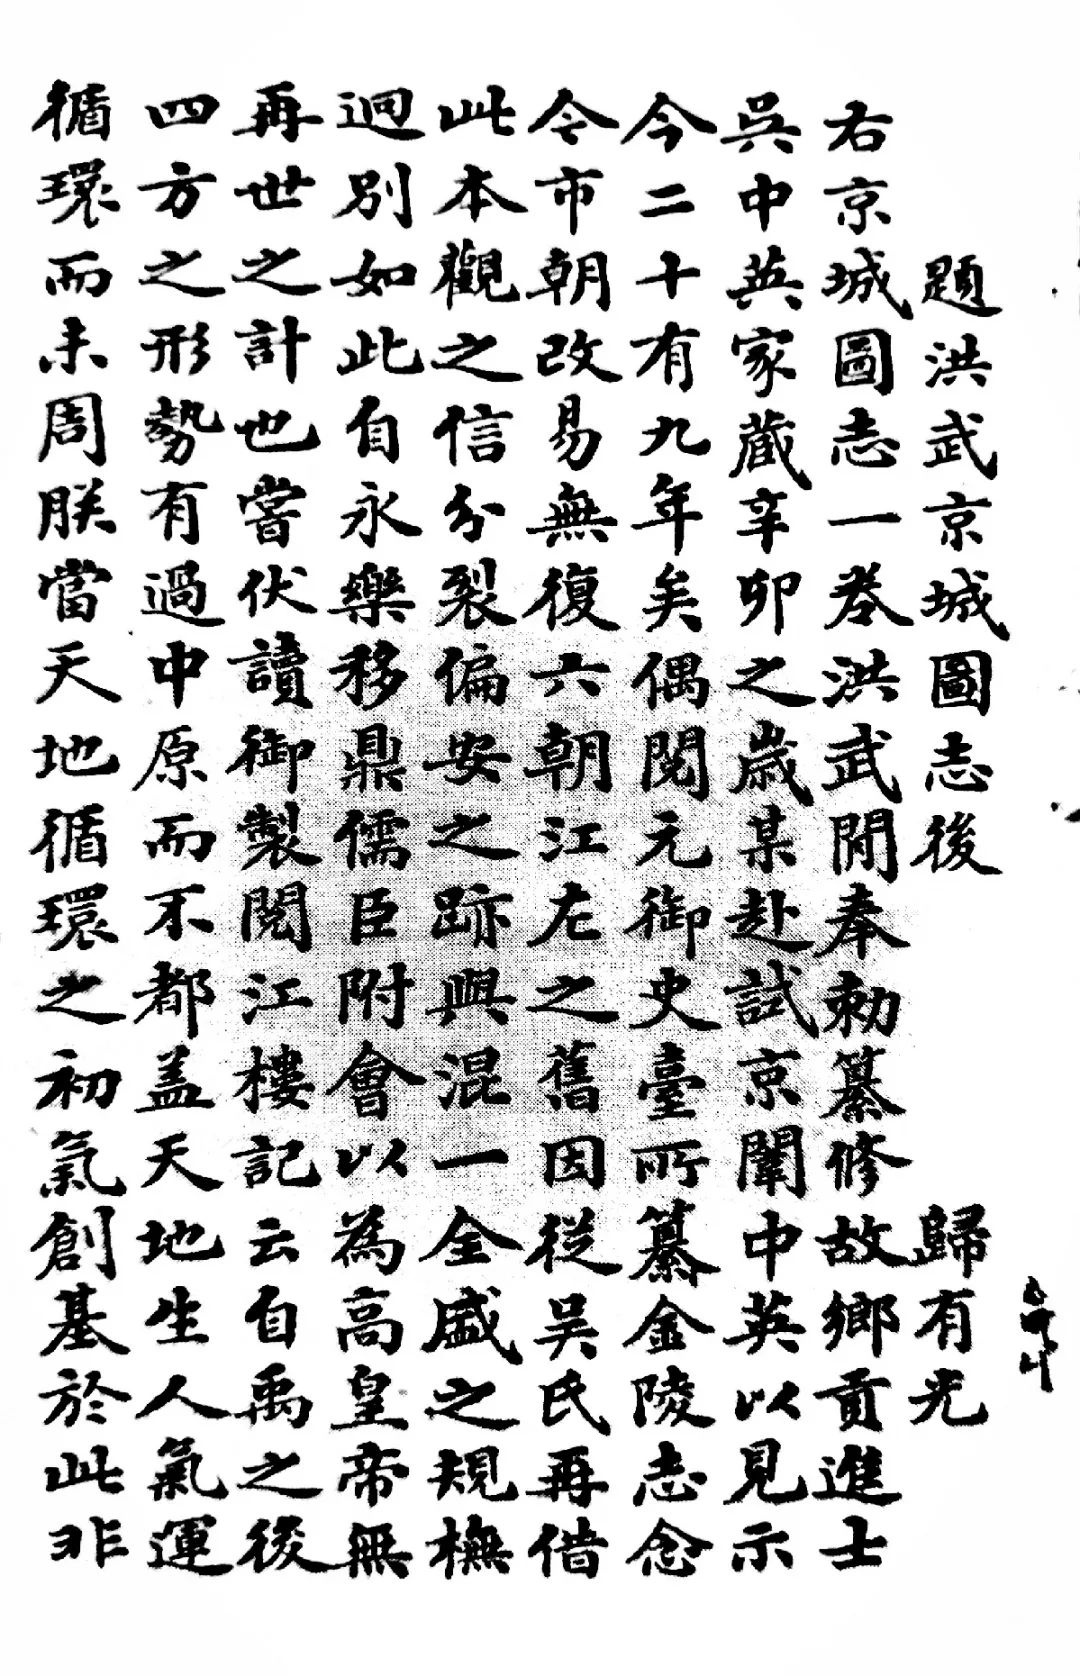 題洪武京城圖志後　歸有光
右京城圖志一卷洪武間奉勅纂修故鄉貢進士
吳中英家藏辛卯之歲某赴試京闈中英以見示
今二十有九年矣偶閱元御史臺所纂金陵志念
今市朝改易無復六朝江左之舊因從吳氏再借
此本觀之信分裂偏安之跡與混一全盛之規橅
迥別如此自永樂移鼎儒臣附會以為高皇帝無
再世之計也嘗伏讀御製閱江樓記云自禹之後
四方之形勢有過中原而不都盖天地生人氣運
循環而未周朕當天地循環之初氣創基於此非